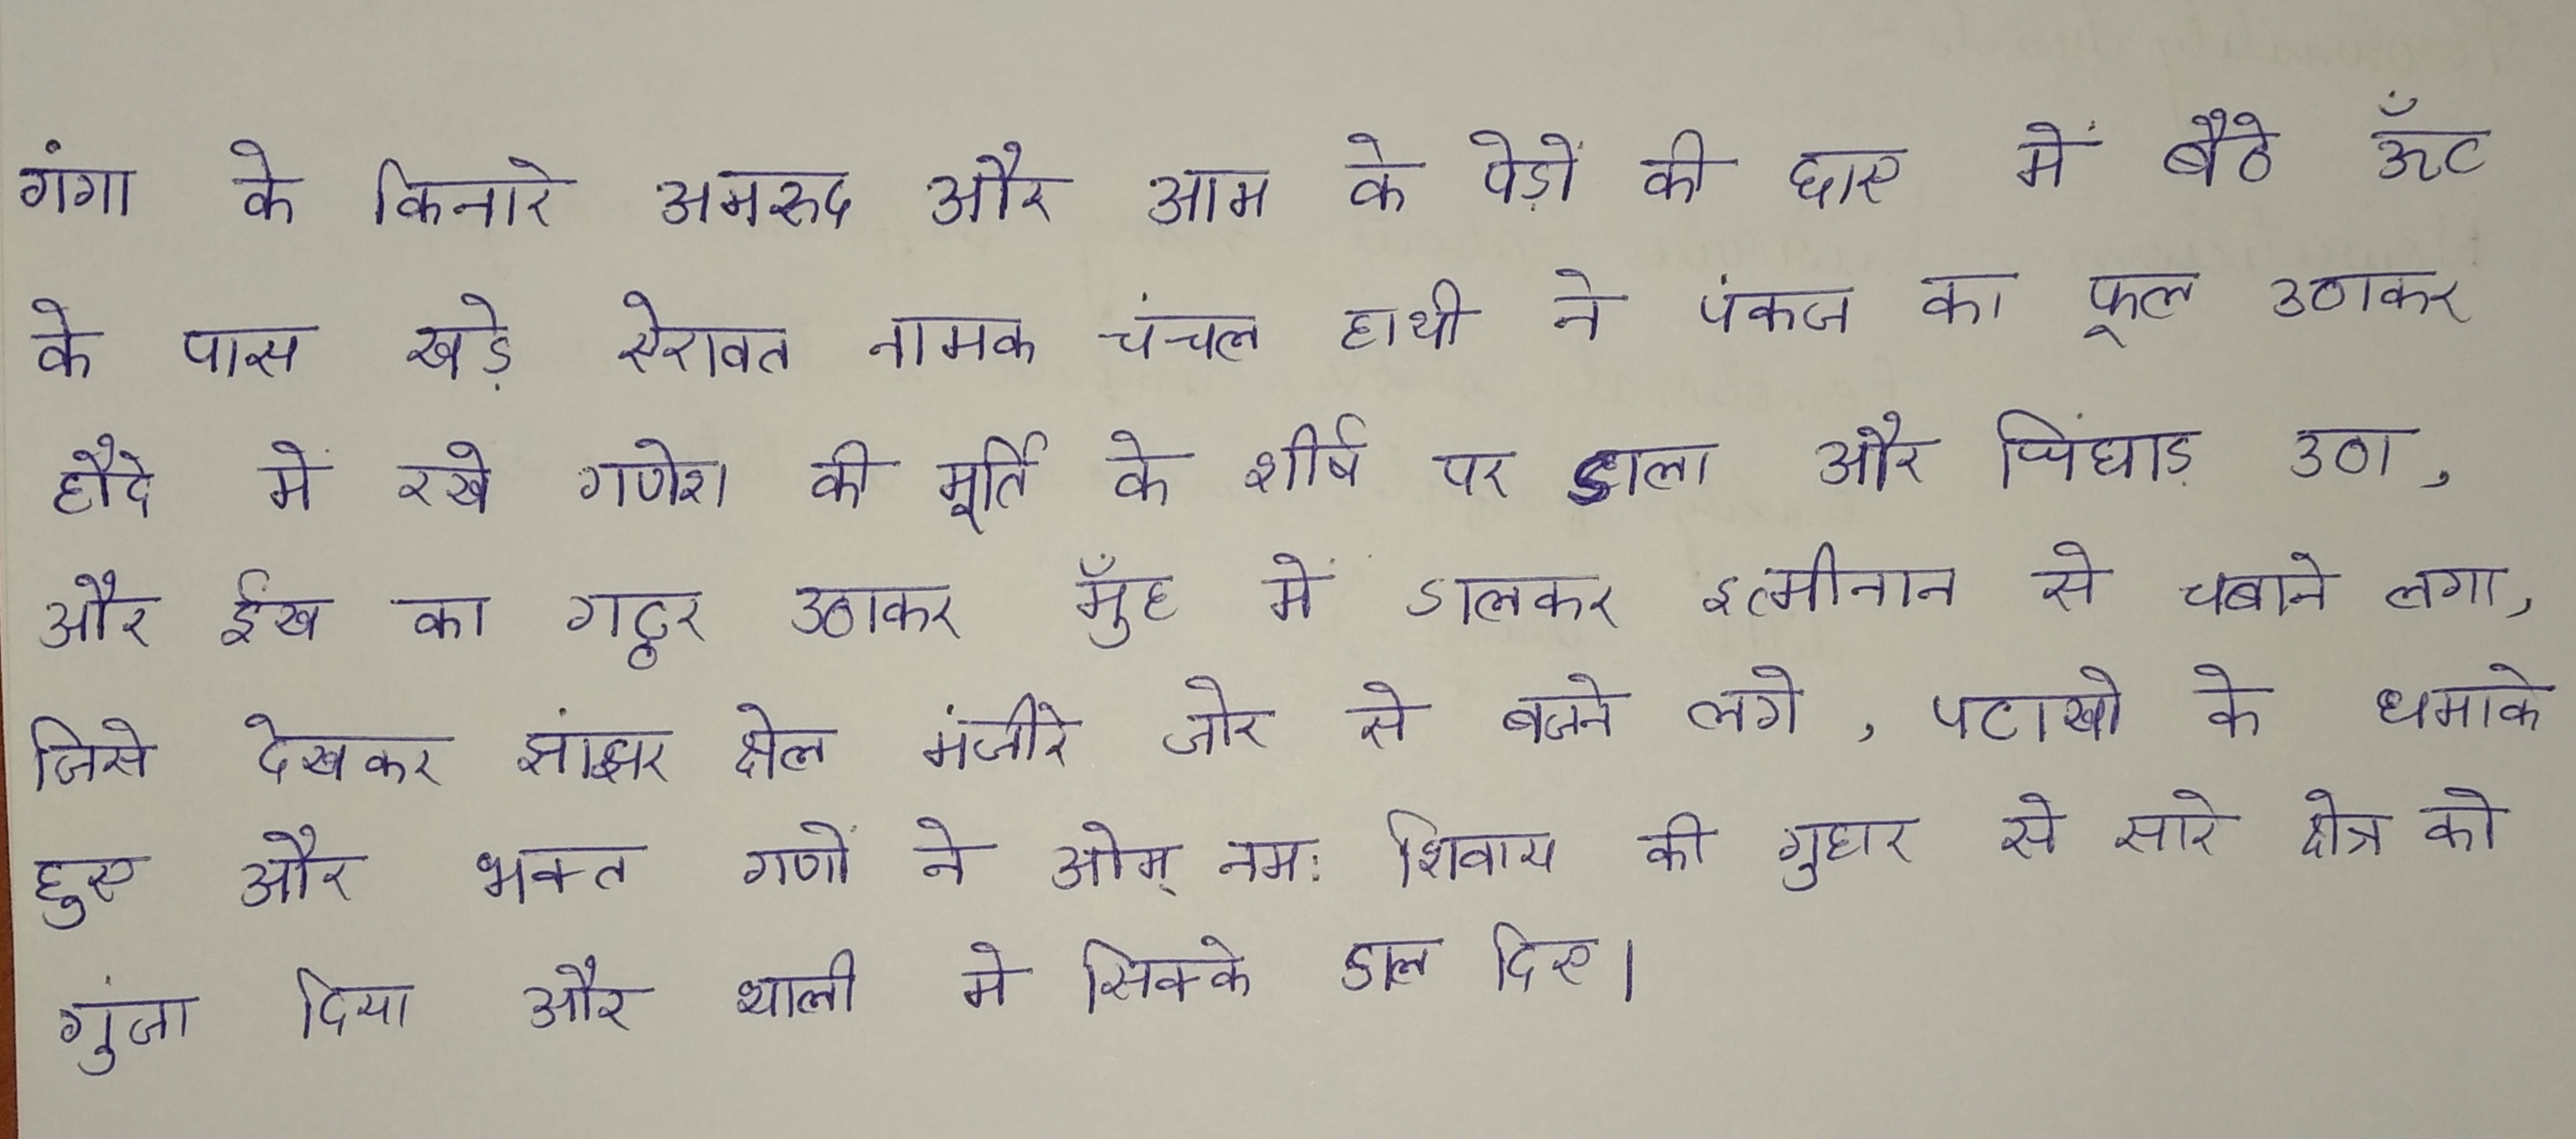 गंगा के किनारे अमरुद और आम के पेड़ों की छाए में बैठे ऊँट
के पास खड़े ऐरावत नामक चंचल हाथी ने पंकज का फूल उठाकर
हौदे में रखे गणेश की मूर्ति के शीर्ष पर डाला और चिंघाड़ उठा,
और ईख का गट्ठर उठाकर मुँह में डालकर इत्मीनान से चबाने लगा,
जिसे देखकर झांझर ढोल मंजीरे जोर से बजने लगे, पटाखो के धमाके
हुए और भक्त गणों ने ओम् नमः शिवाय की गुहार से सारे क्षेत्र को
गुंजा दिया और थाली मे सिक्के डाल दिए।